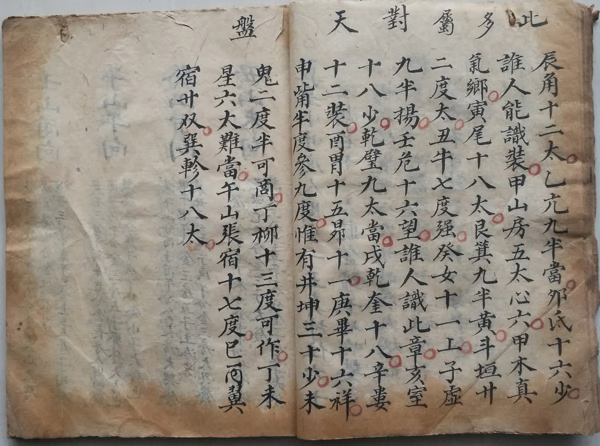 此多屬對天盤
辰角十二太乙亢九半當卯氐十六少
誰人能識裝甲山房五太心六甲木真
氣鄉寅尾十八太艮箕九半黃斗垣廿
二度太丑牛七度强癸女十一工子虛
九半揚壬危十六望誰人識此章亥室
十八少乾壁九太當戌乾奎十八辛婁
十二裝酉胃十五昴十一庚畢十六祥
申觜半度參九度惟有井坤三十少未
鬼二度半可商丁柳十三度可作丁未
星六太難當午山張宿十七度巳丙翼
宿廿双巽軫十八太